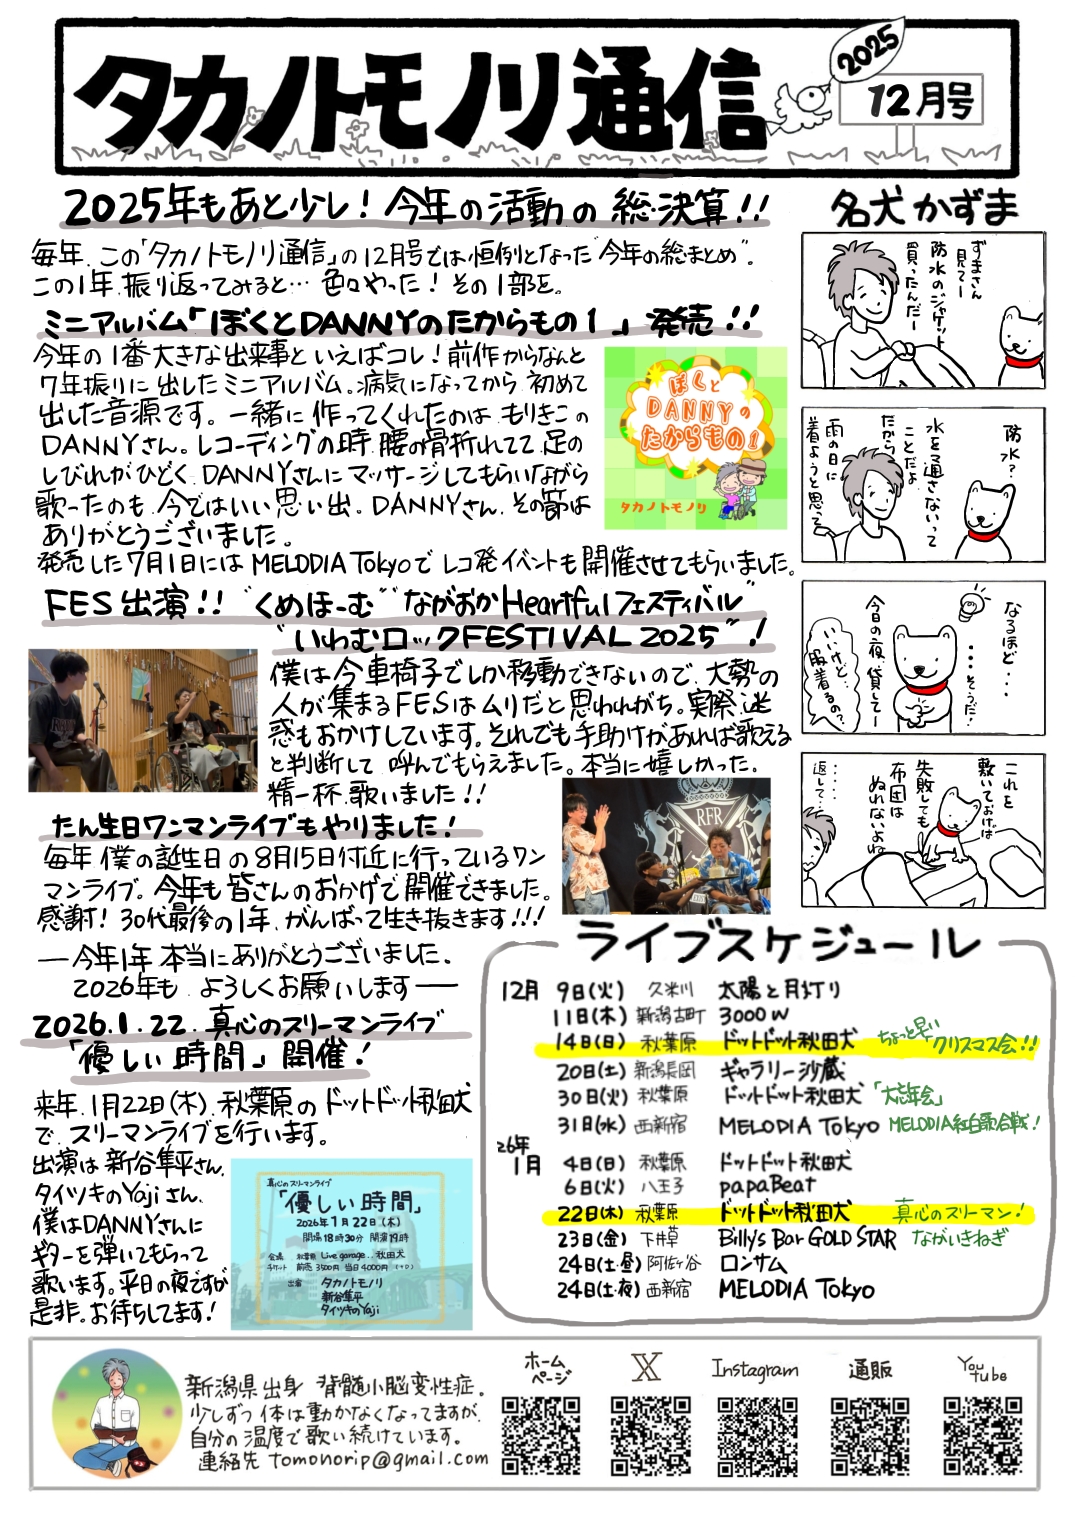 タカノトモノリ通信
2025
12月号
2025年もあと少し!今年の活動の総決算!!
毎年、この「タカノトモノリ通信」の12月号では恒例となった“今年の総まとめ”。
この1年、振り返ってみると…色々やった!その1部を。
ミニアルバム「ぼくとDANNYのたからもの1」発売!!
今年の1番大きな出来事といえばコレ!前作からなんと
7年振りに出したミニアルバム。病気になってから初めて
出した音源です。一緒に作ってくれたのは、もりきこの
DANNYさん。レコーディングの時、腰の骨折れてて、足の
しびれがひどく、DANNYさんにマッサージしてもらいながら
歌ったのも、今ではいい思い出。DANNYさん、その節は
ありがとうございました。
発売した7月1日にはMELODIA Tokyoでレコ発イベントも開催させてもらいました。
ぼくと
DANNYの
たからもの1
タカノトモノリ
FES出演!!“くめほーむ”“ながおかHeartfulフェスティバル”
“いわむロックFESTIVAL 2025”!
僕は今車椅子でしか移動できないので、大勢の
人が集まるFESはムリだと思われがち。実際、迷
惑もおかけしています。それでも手助けがあれば歌える
と判断して、呼んでもらえました。本当に嬉しかった。
精一杯、歌いました!!
RFR
たん生日ワンマンライブもやりました!
毎年僕の誕生日の8月15日付近に行っているワン
マンライブ。今年も皆さんのおかげで開催できました。
感謝!30代最後の1年、がんばって生き抜きます!!!
―今年1年本当にありがとうございました。
2026年も、よろしくお願いします―
2026.1.22.真心のスリーマンライブ
「優しい時間」開催!
来年、1月22日(木)、秋葉原のドットドット秋田犬
で、スリーマンライブを行います。
出演は新谷隼平さん、
タイツキのYajiさん、
僕はDANNYさんに
ギターを弾いてもらって
歌います。平日の夜ですが
是非。お待ちしてます!
真心のスリーマンライブ
「優しい時間」
2026年1月22日(木)
開場18時30分 開演19時
会場 秋葉原 Live garage..秋田犬
チケット 前売3500円 当日4000円 (+D)
出演 タカノトモノリ
新谷隼平
タイツキのYaji
名犬かずま
ずまさん
見てー
防水のジャケット
買ったんだー
防水?
水を通さないって
ことだよ
だから
雨の日に
着ようと思って
なるほど…
…そうだ!
今日の夜、貸してー
いいけど…
服着るの?
これを
敷いておけば
失敗しても
布団は
ぬれないよね
……
返して…
ライブスケジュール
12月 9日(火) 久米川 太陽と月灯り
11日(木) 新潟古町 3000W
14日(日) 秋葉原 ドットドット秋田犬 ちょっと早い クリスマス会!!
20日(土) 新潟長岡 ギャラリー沙蔵
30日(火) 秋葉原 ドットドット秋田犬 「大忘年会」
31日(水) 西新宿 MELODIA Tokyo MELODIA紅白歌合戦!
26年
1月 4日(日) 秋葉原 ドットドット秋田犬
6日(火) 八王子 papaBeat
22日(木) 秋葉原 ドットドット秋田犬 真心のスリーマン!
23日(金) 下井草 Billy's Bar GOLD STAR ながいきねぎ
24日(土・昼) 阿佐ヶ谷 ロンサム
24日(土・夜) 西新宿 MELODIA Tokyo
新潟県出身 脊髄小脳変性症。
少しずつ体は動かなくなってますが、
自分の温度で歌い続けています。
連絡先 tomonorip@gmail.com
ホーム
ページ
X
Instagram
通販
You
tube